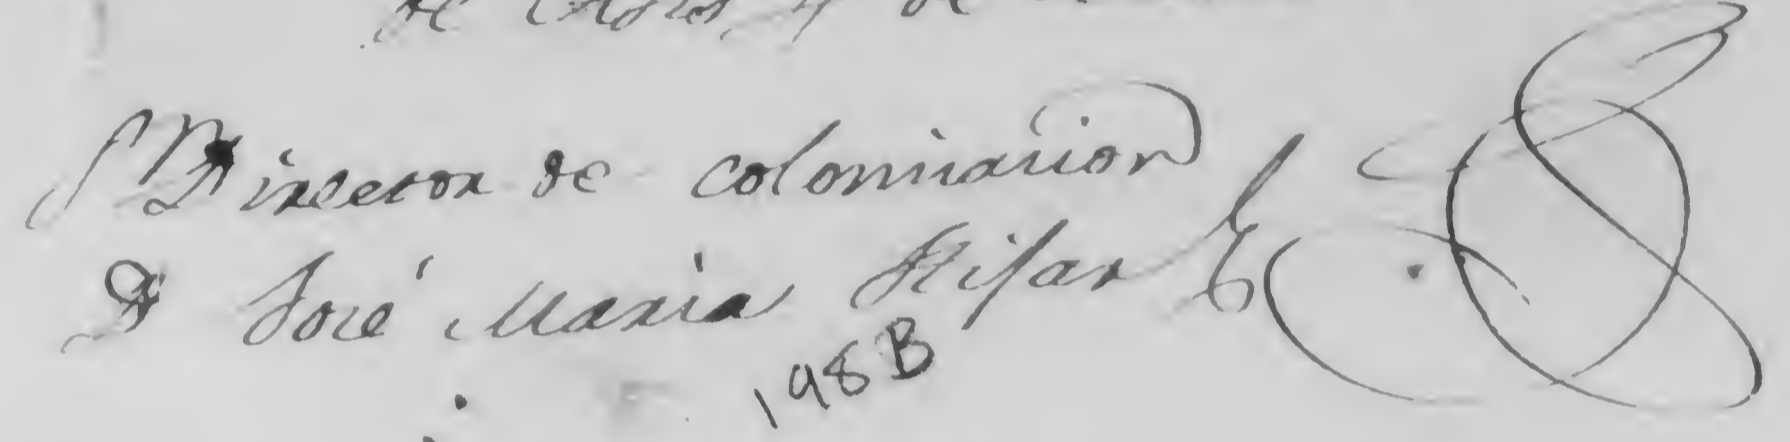 de
S Director de colonisacion
D José Maria Hijar
198B